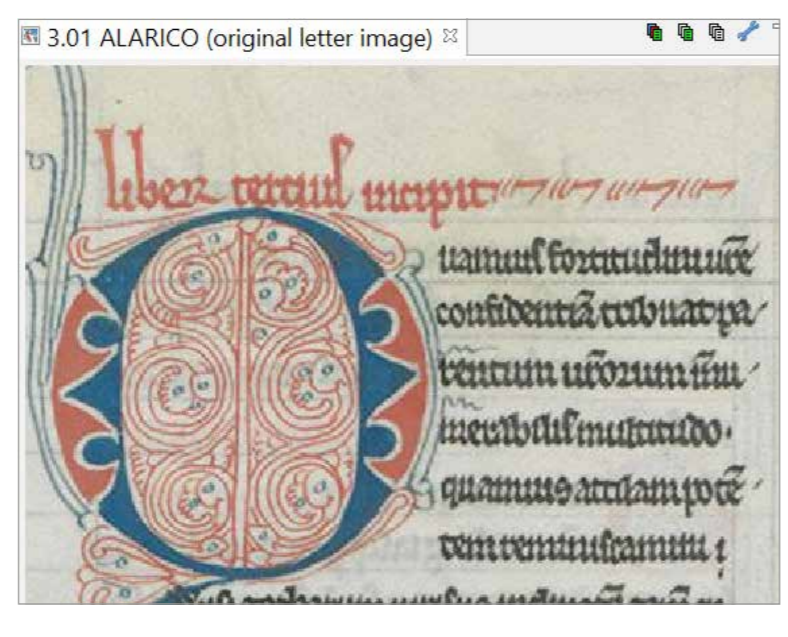 3.01 ALARICO (original letter image)
liber tercius incipit
Q uamuis fortitudini ur̄e
confidentiā tribuat pa/
rentum ur̄orum īnu/
merabilis multitudo.
quamuis attilam potē/
tem reminiscamini